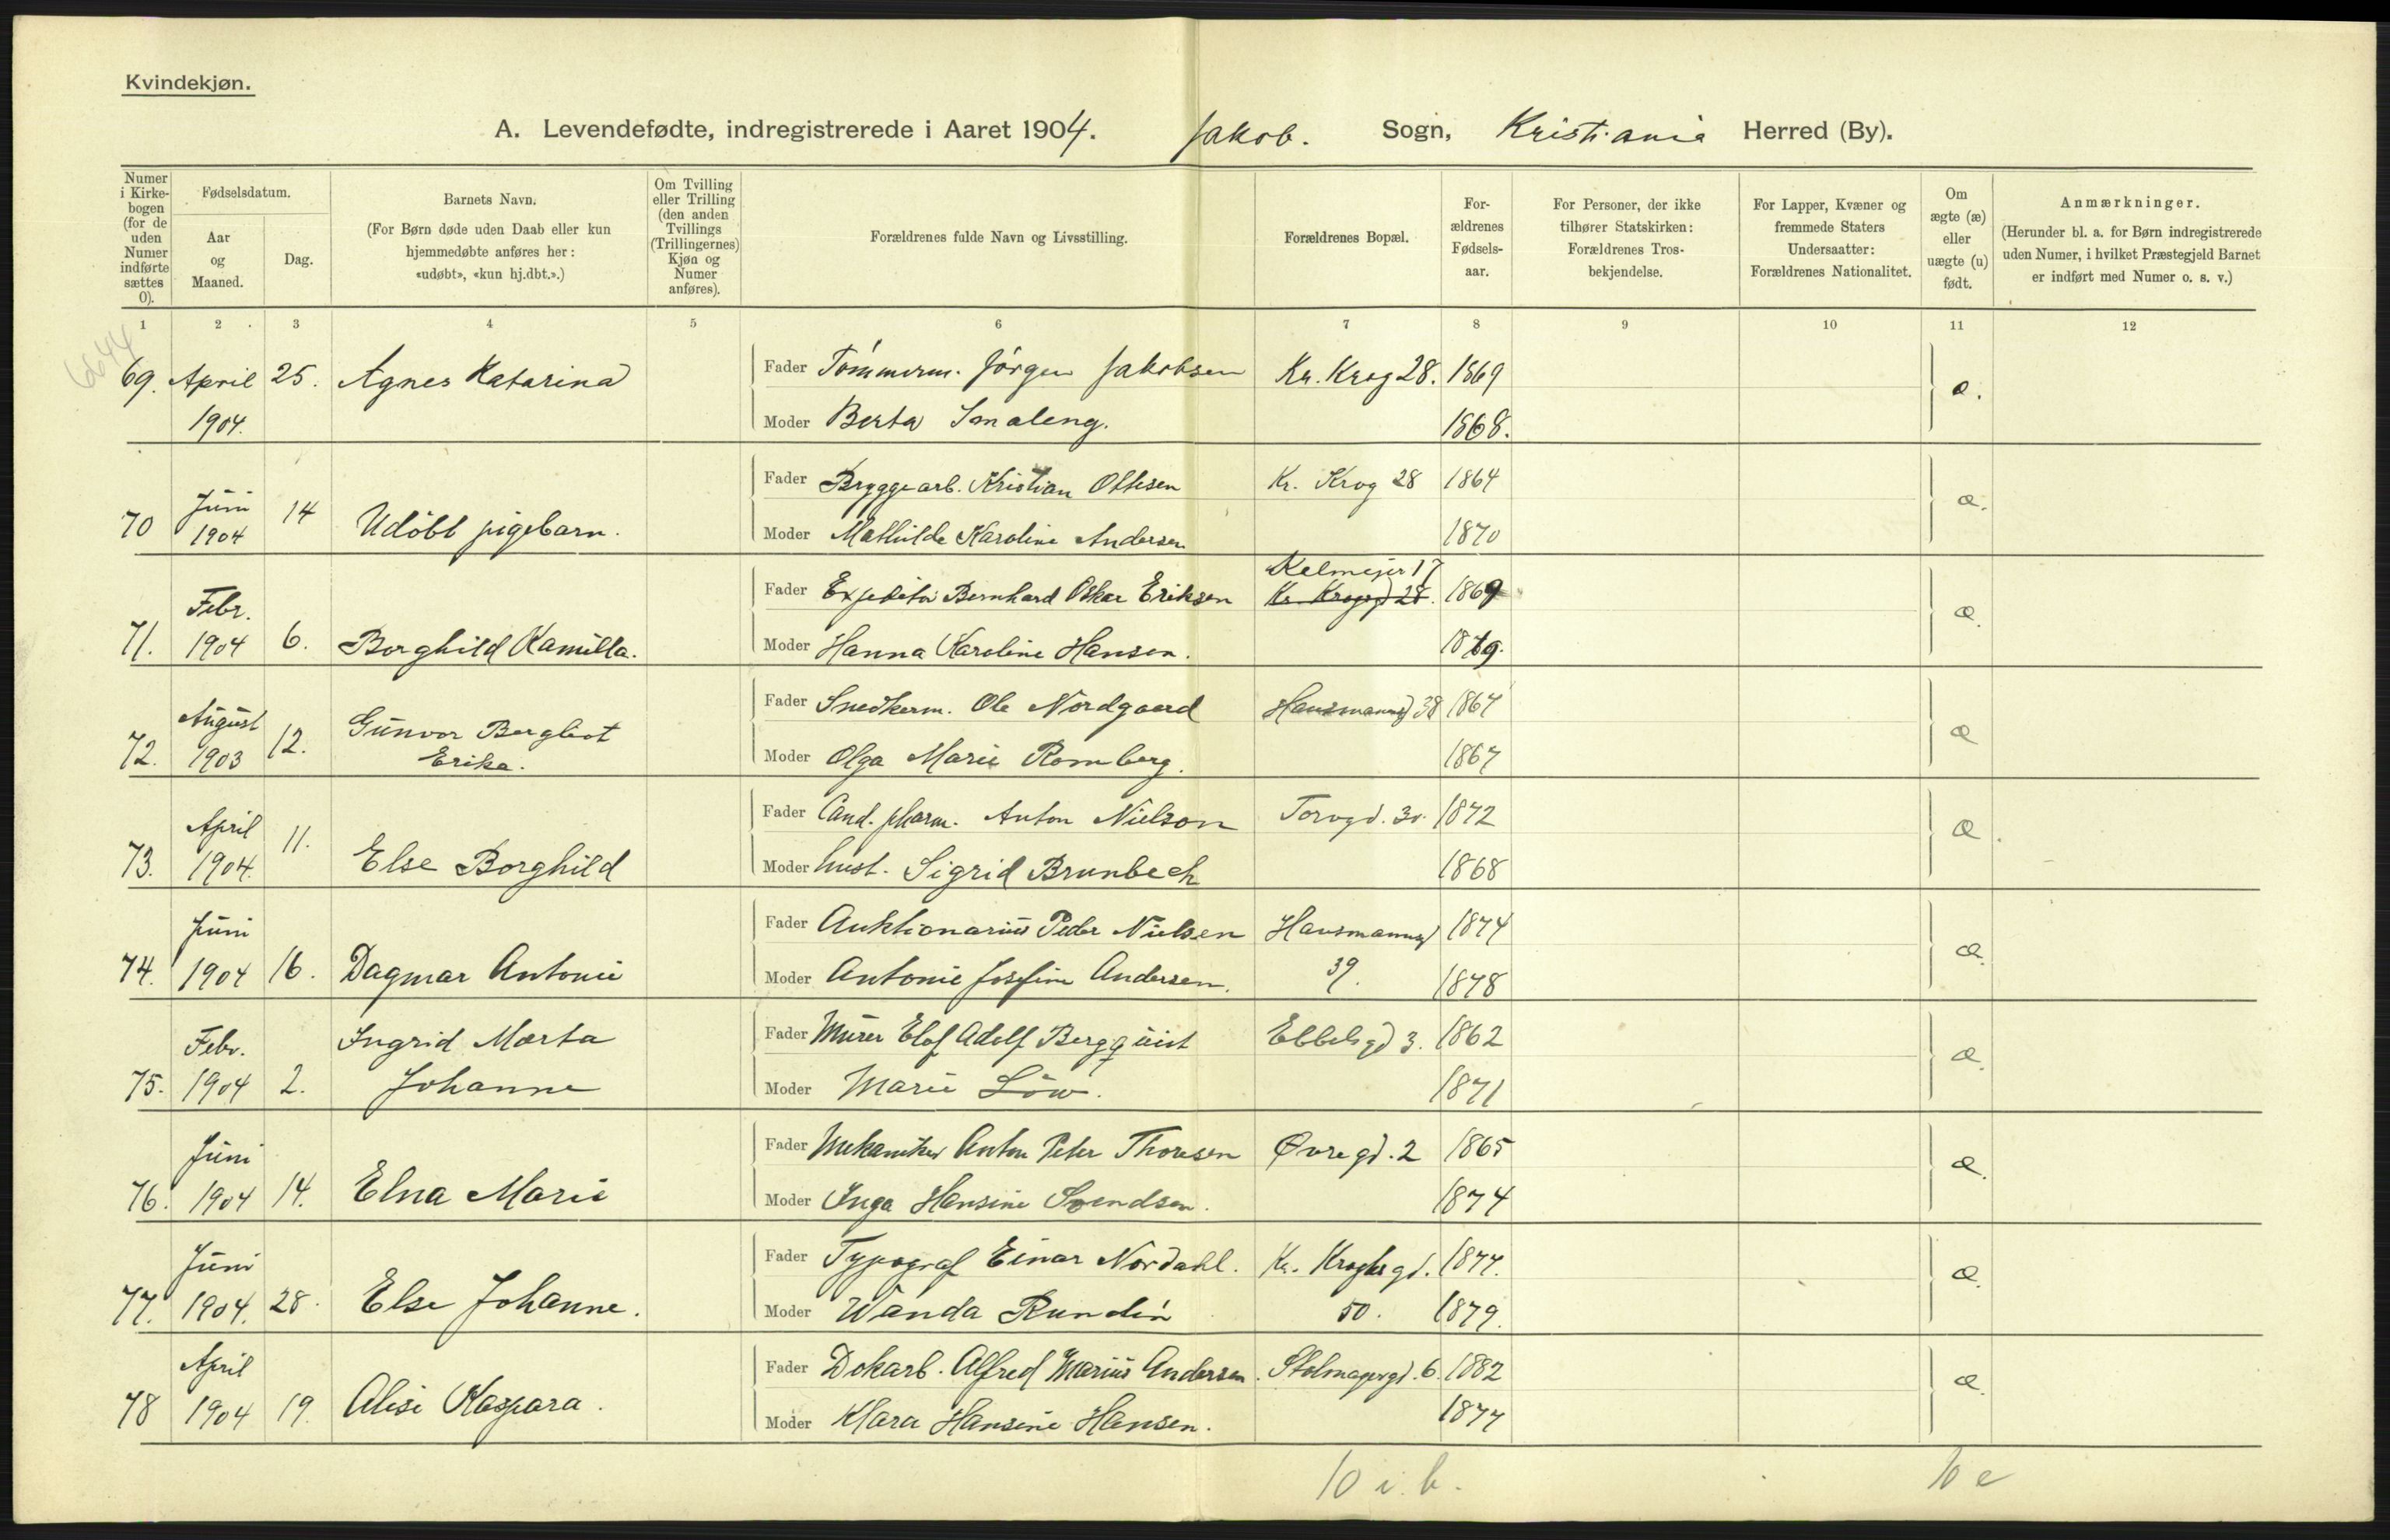 Kvindekjøn.
A. Levendefødte, indregistrerede i Aaret 1904. Jakob. Sogn, Kristiania Herred (By).
Numer i Kirkebogen (for de uden Numer indførte sættes 0).
Fødselsdatum.
Aar og Maaned.
Dag.
Barnets Navn.
(For Børn døde uden Daab eller kun hjemmedøbte anføres her: «udøbt», «kun hj.dbt.».)
Om Tvilling eller Trilling (den anden Tvillings (Trillingernes) Kjøn og Numer anføres).
Forældrenes fulde Navn og Livsstilling.
Forældrenes Bopæl.
Forældrenes Fødselsaar.
For Personer, der ikke tilhører Statskirken: Forældrenes Trosbekjendelse.
For Lapper, Kvæner og fremmede Staters Undersaatter: Forældrenes Nationalitet.
Om ægte (æ) eller uægte (u) født.
Anmærkninger.
(Herunder bl. a. for Børn indregistrerede uden Numer, i hvilket Præstegjeld Barnet er indført med Numer o. s. v.)
1 2 3 4 5 6 7 8 9 10 11 12
6644
69. April 25. Agnes Katarina Fader Tømmerm. Jørgen Jakobsen Kr. Krog 28. 1869 æ.
1904. Moder Berta Smaleng. 1868.
Fader Bryggearb. Kristian Ottesen Kr. Krog 28 1864 æ.
70 Juni 1904 14 Udøbt pigebarn. Moder Mathilde Karoline Andersen 1870
Kelmejer 17
Fader Expeditør Bernhard Oskar Eriksen Kr. Krogsgd 28. 1869 æ.
71. Febr. 1904 6. Borghild Kamilla. Moder Hanna Karoline Hansen. 1879.
Fader Snedkerm. Ole Nordgaard Hausmannsgd 38 1867 æ
72. August 1903 12. Gunvor Bergliot Erika. Moder Olga Marie Romberg. 1867
Fader Cand. pharm. Anton Nielson Torvgd. 3 1872 æ.
73. April 1904. 11. Else Borghild Moder hust. Sigrid Brunbech 1868
Fader Auktionarius Peder Nielsen Hausmannsgd 1874 æ.
74. Juni 1904 16. Dagmar Antonie Moder Antonie Josefine Andersen. 39. 1878
Fader Murer Elof Adolf Bergquist Ebbelsgd 3. 1862 æ.
75. Febr. 1904 2. Ingrid Marta Johanne Moder Marie Löw. 1871
Fader Mekaniker Anton Peter Thoresen Øvregd. 2 1865 æ.
76. Juni 1904 14. Elna Marie Moder Inga Hansine Svendsen. 1874
Fader Typograf Einar Nordahl. Kr. Kroghs gd. 1877. æ.
77. Juni 1904. 28. Else Johanne. Moder Wanda Rundin 50. 1879.
Fader Dokarb. Alfred Marius Andersen. Stolmagergd. 6. 1882 æ.
78 April 1904 19. Alise Kaspara. Moder Klara Hansine Hansen. 1877
10 i. b. 10 e